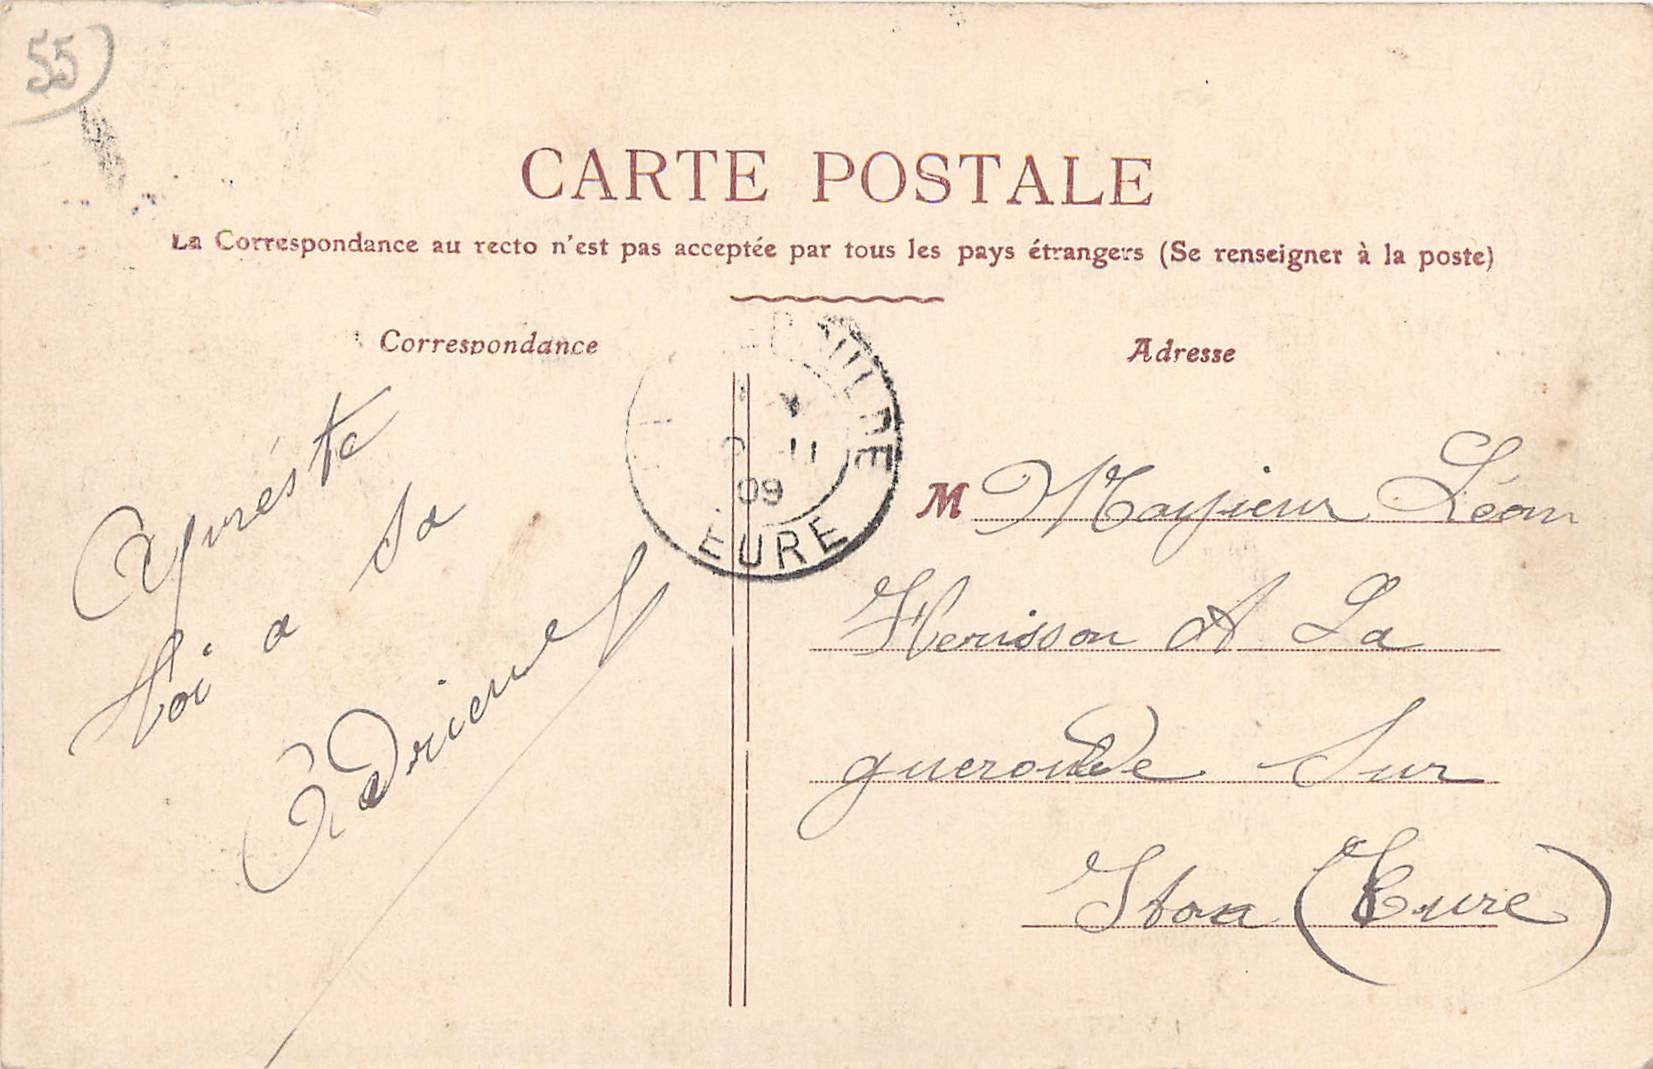 55
CARTE POSTALE
La Correspondance au recto n'est pas acceptée par tous les pays étrangers (Se renseigner à la poste)
Correspondance
toi a Sa
Adrienne
09
EURE
Adresse
M Monsieur Léon
Herisson A La
gueroulde Sur
Iton (Eure)